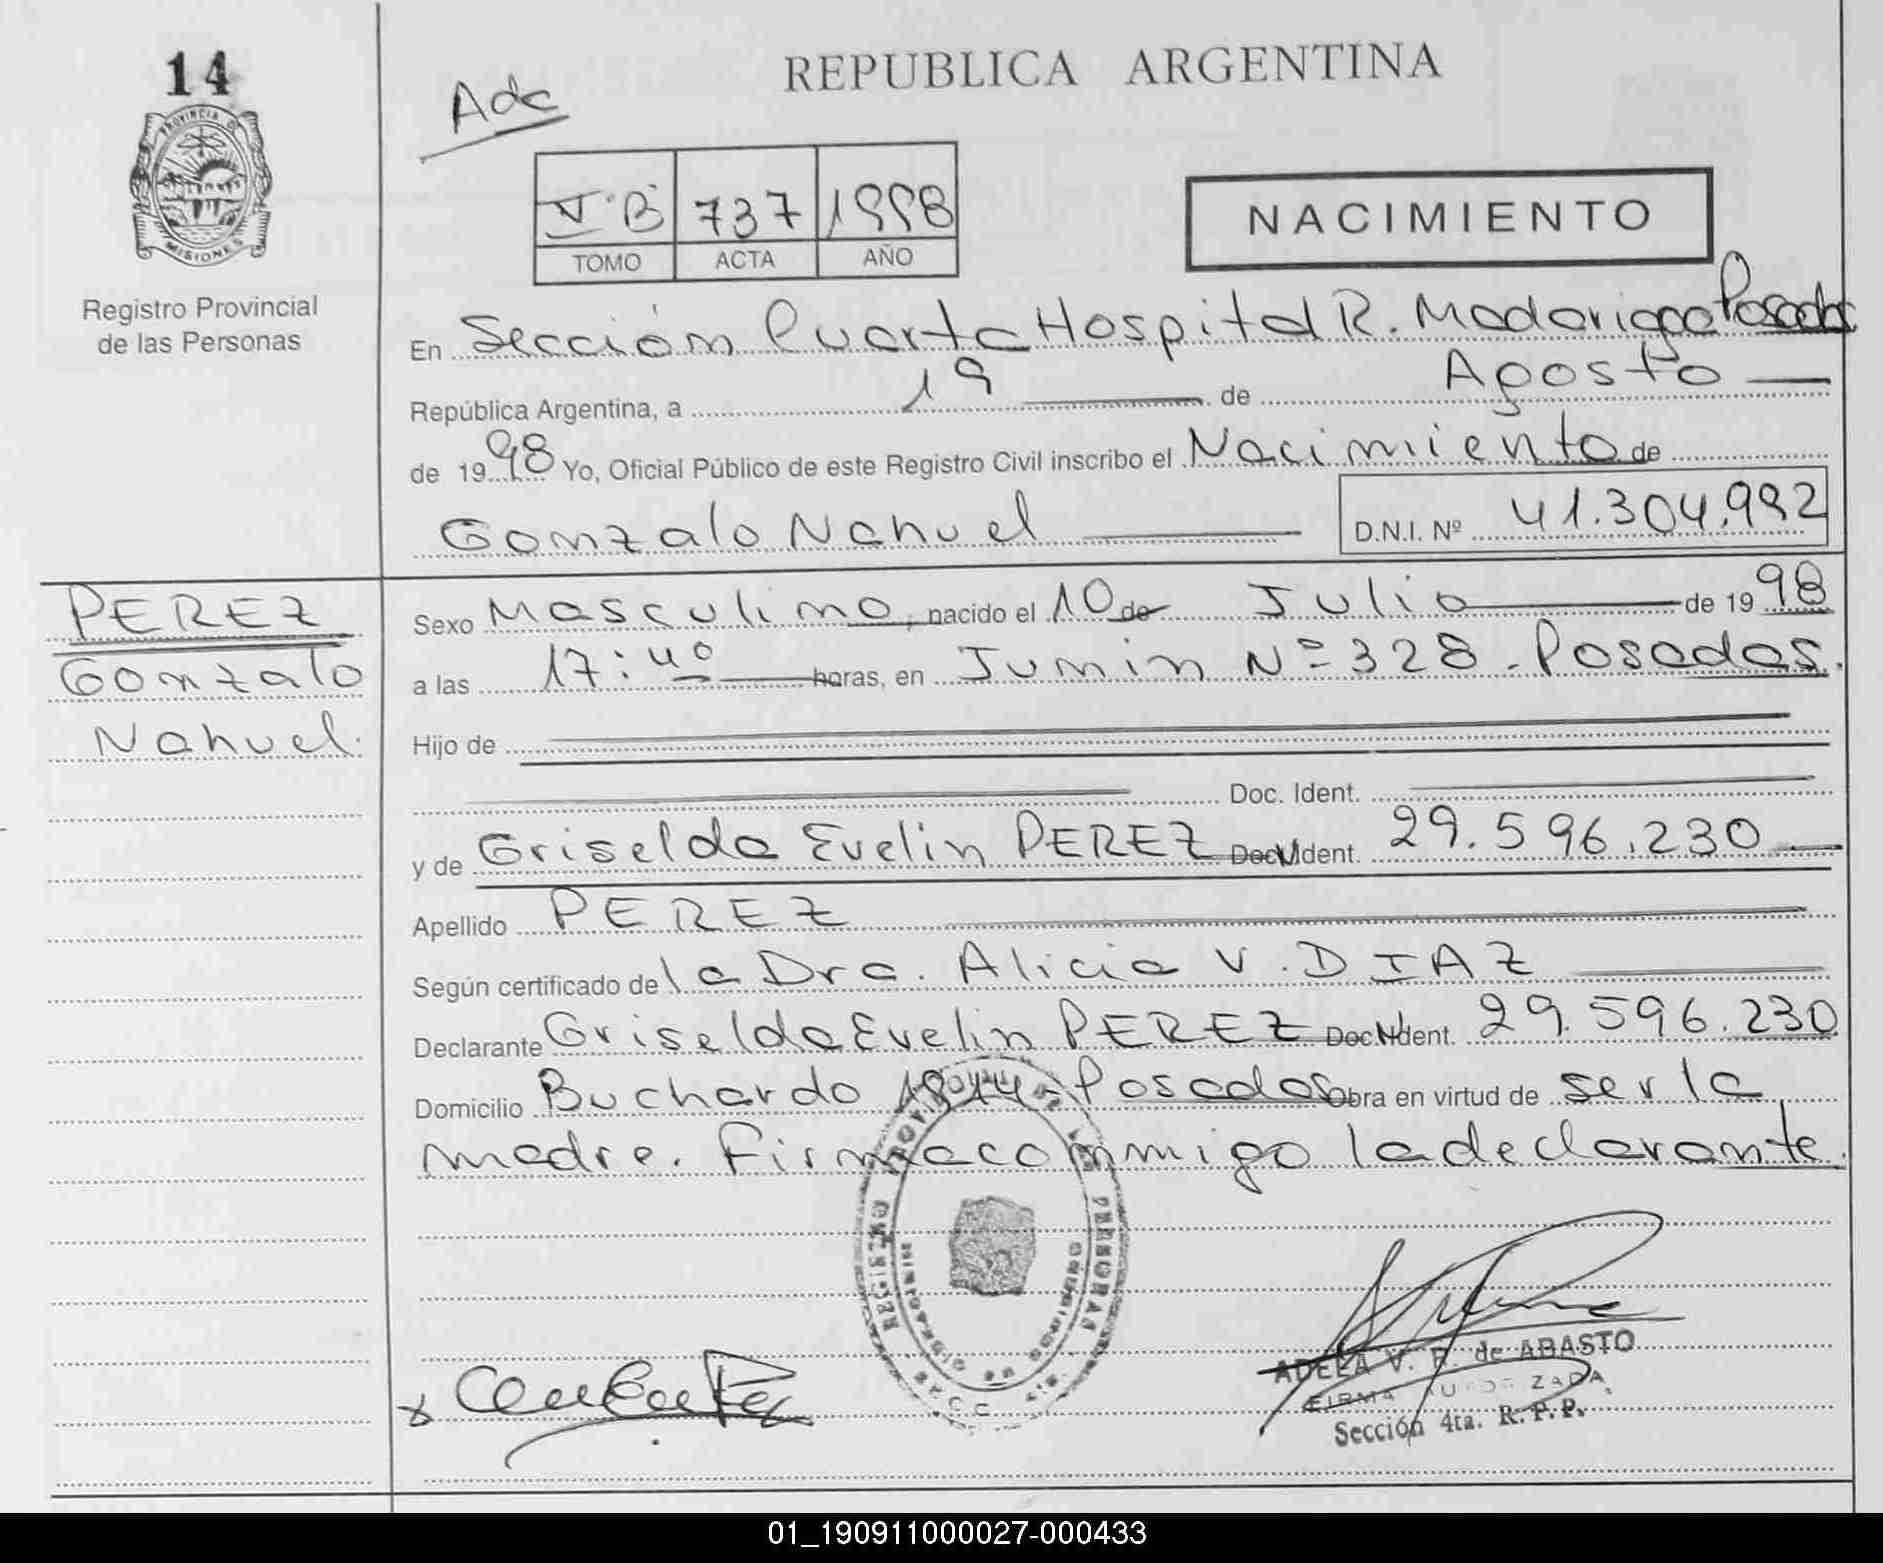 14
PROVINCIA D
MISIONES
Registro Provincial
de las Personas
REPUBLICA ARGENTINA
V·B 737 1998
TOMO ACTA AÑO
NACIMIENTO
En Sección Cuarta Hospital R. Madariaga Posadas
República Argentina, a 19 de Agosto
de 1998 Yo, Oficial Público de este Registro Civil inscribo el Nacimiento de
Gonzalo Nahuel D.N.I. Nº 41.304.992
PEREZ
Gonzalo
Nahuel.
Sexo Masculino, nacido el 10 de Julio de 1998
a las 17:40 horas, en Junin Nº 328 - Posadas.
Hijo de
Doc. Ident.
y de Griselda Evelin PEREZ Doc. Ident. 29.596.230
Apellido PEREZ
Según certificado de la Dra. Alicia V. DIAZ
Declarante Griselda Evelin PEREZ Doc. Ident. 29.596.230
Domicilio Buchardo - Posadas Obra en virtud de ser la
madre. Firma conmigo la declarante.
ADELA V. P. de ABASTO
FIRMA AUTORIZADA
Sección 4ta. R. P. P.
01_190911000027-000433